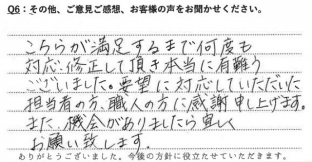 Q6：その他、ご意見ご感想、お客様の声をお聞かせください。
こちらが満足するまで何度も
対応、修正して頂き本当に有難う
ございました。要望に対応していただいた
担当者の方、職人の方に感謝申し上げます。
また、機会がありましたら宜しく
お願い致します。
ありがとうございました。今後の方針に役立たせていただきます。